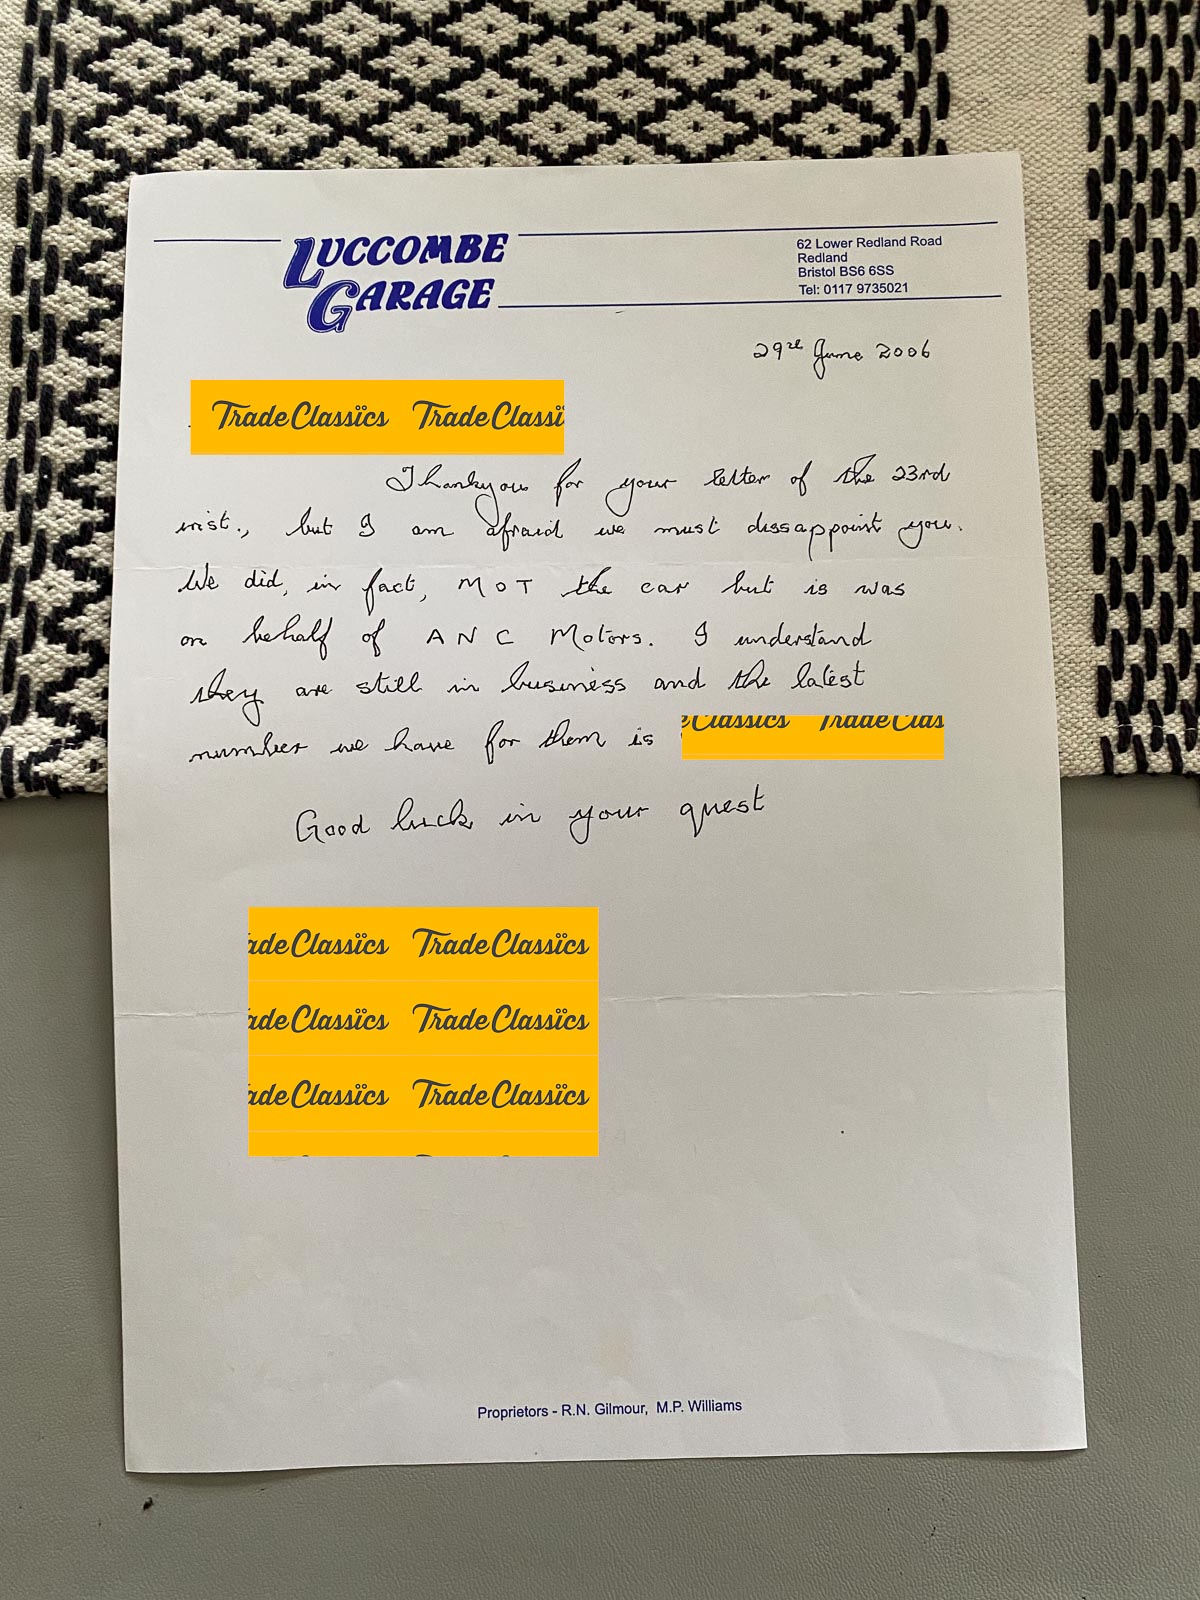 LUCCOMBE
GARAGE
62 Lower Redland Road
Redland
Bristol BS6 6SS
Tel: 0117 9735021
29th June 2006
Trade Classics Trade Classi
Thankyou for your letter of the 23rd
inst., but I am afraid we must dissappoint you.
We did, in fact, MOT the car but is was
on behalf of ANC Motors. I understand
they are still in business and the latest
number we have for them is e Classics Trade Clas
Good luck in your quest
ade Classics Trade Classics
ade Classics Trade Classics
ade Classics Trade Classics
Proprietors - R.N. Gilmour, M.P. Williams